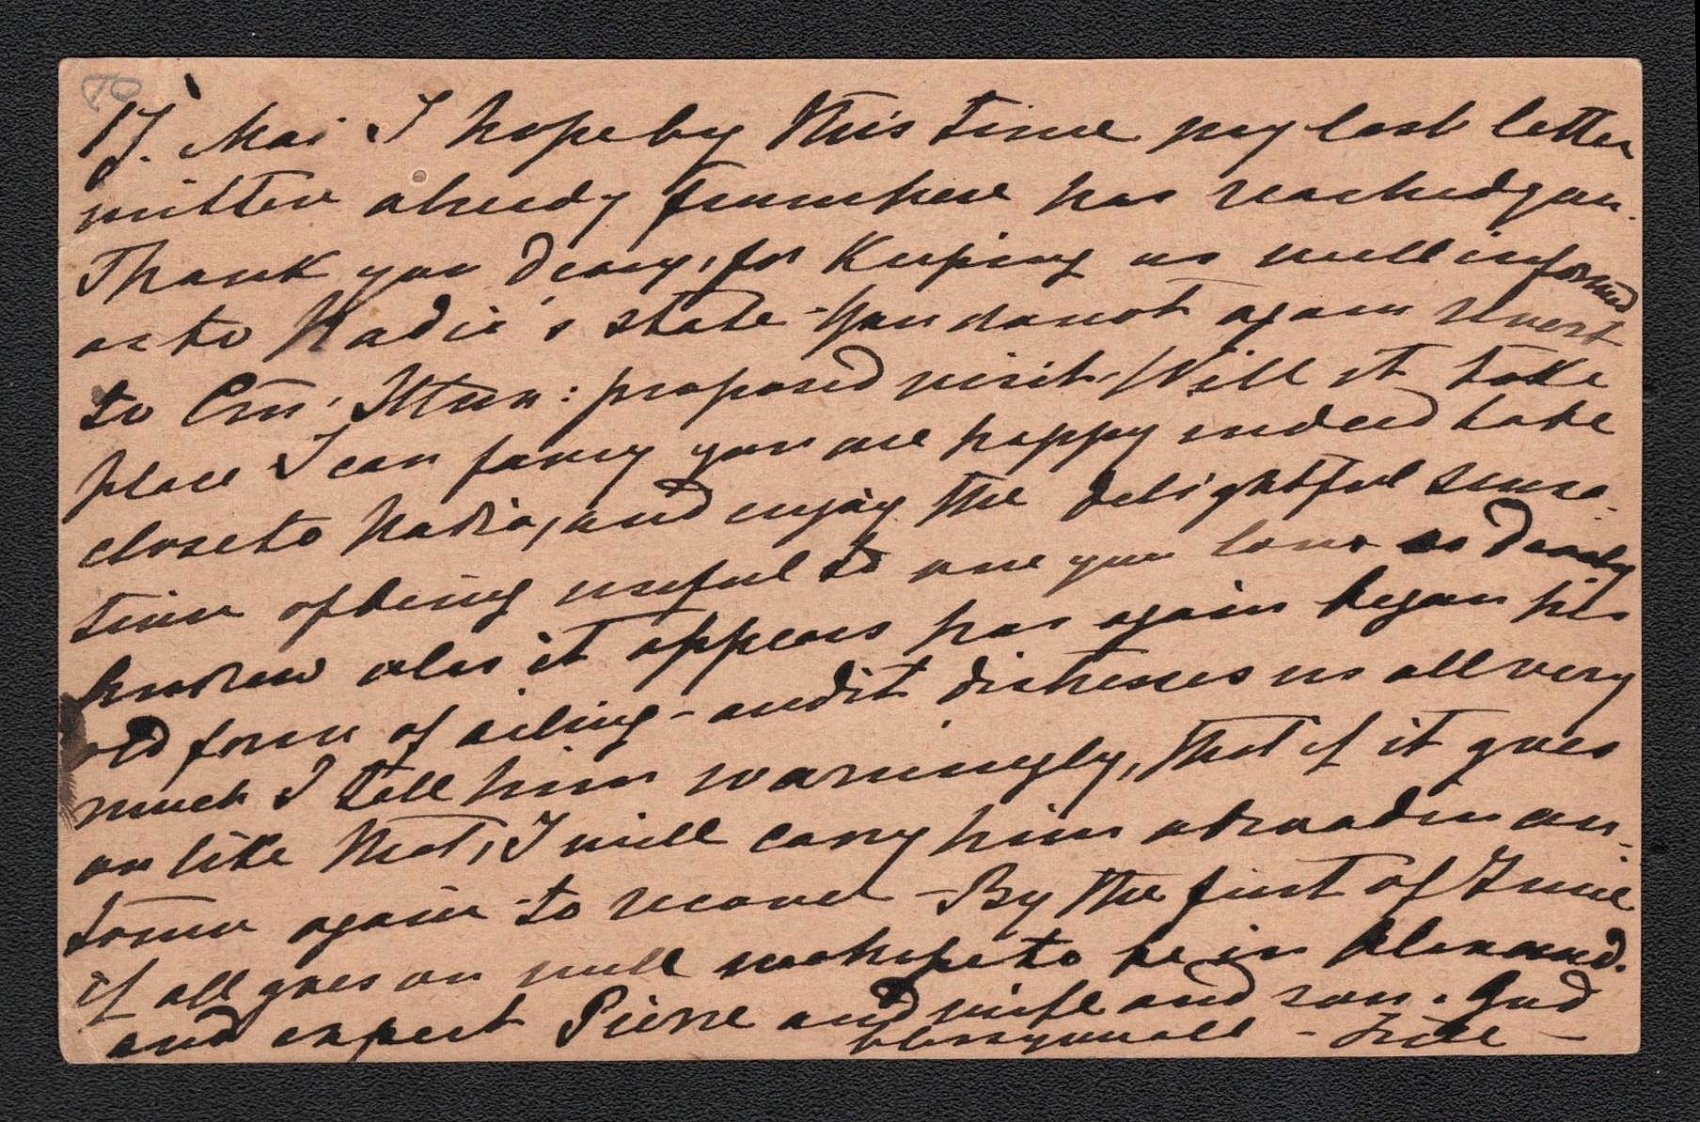 17. Mai I hope by this time my last letter
written already from here has reached you.
Thank you deary, for Keeping us well informed
as to Nadie's state - You do not again revert
to proposed visit, Will it take
place I can fancy you are happy indeed to be
close to Nadia, and enjoy the delightful sensa-
tion of being useful to one you love so dearly
Andrew alas it appears has again began his
old form of ailing - and it distresses us all very
much I tell him warningly, that if it goes
on like that, I will carry him abroad in au-
tomn again to recover - By the first of June
if all goes on well we hope to be in Alexand.
and expect Pierre and wife and son. God
bless you all -